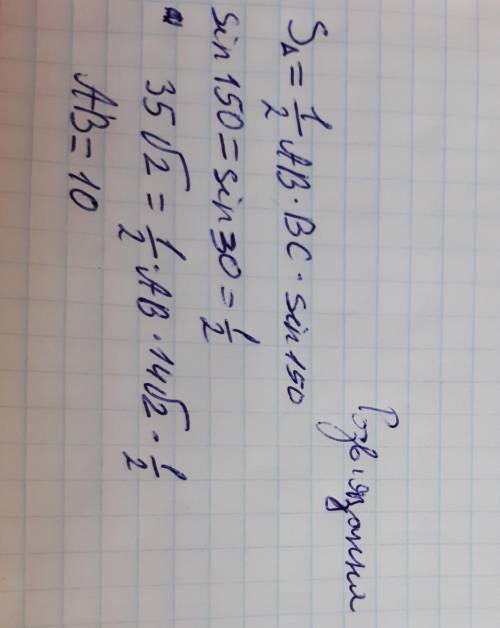 Розв'язання
S_Δ = 1/2 AB · BC · sin 150
sin 150 = sin 30 = 1/2
35√2 = 1/2 · AB · 14√2 · 1/2
AB = 10